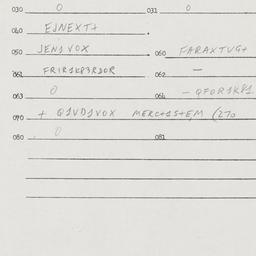 030 0 031 0
040 EJNEXT+ .
050 JENSVOX 060 FARAXTUG+
061 FRIR1K83RDOR 062 —
063 0 064 - QFOR1K81
070 + Q1VD1VOX MERC+1S+EM (270
080 0 081